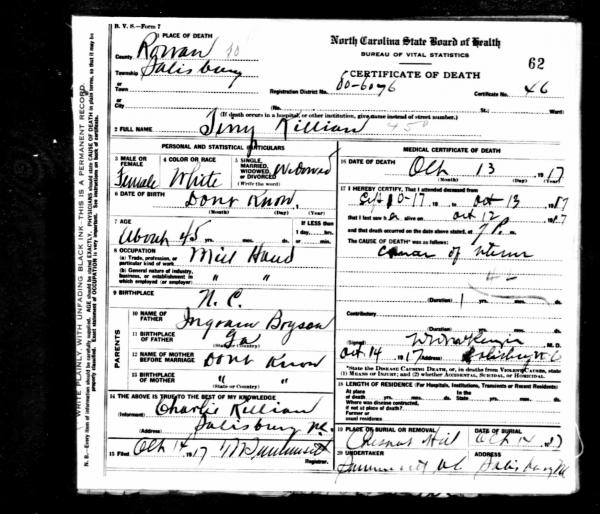 B. V. S.—Form 7
1 PLACE OF DEATH
County Rowan
Township Salisbury
or
Town
or
City
North Carolina State Board of Health
BUREAU OF VITAL STATISTICS
62
CERTIFICATE OF DEATH
Registration District No. 80-6076 Certificate No. 46
(No. St.; Ward)
(If death occurs in a hospital or other institution, give name instead of street number.)
2 FULL NAME Killian
PERSONAL AND STATISTICAL PARTICULARS
3 MALE OR FEMALE Female
4 COLOR OR RACE White
5 SINGLE, MARRIED, WIDOWED, OR DIVORCED (Write the word) Widowed
6 DATE OF BIRTH Dont Know
(Month) (Day) (Year)
7 AGE About 45 yrs. mos. ds.
If LESS than 1 day, hrs. or min.
8 OCCUPATION
(a) Trade, profession, or particular kind of work Mill Hand
(b) General nature of industry, business, or establishment in which employed (or employer) " "
9 BIRTHPLACE N. C.
PARENTS
10 NAME OF FATHER Ingram Bryson
11 BIRTHPLACE OF FATHER (State or Country) Ga
12 NAME OF MOTHER BEFORE MARRIAGE Dont Know
13 BIRTHPLACE OF MOTHER (State or Country) "
14 THE ABOVE IS TRUE TO THE BEST OF MY KNOWLEDGE
(Informant) Charlie Killian
(Address) Salisbury NC
15 Filed Oct 14 1917
Registrar.
MEDICAL CERTIFICATE OF DEATH
16 DATE OF DEATH Oct 13 1917
(Month) (Day) (Year)
17 I HEREBY CERTIFY, That I attended deceased from
Sept 10-17 to Oct 13 1917
that I last saw her alive on Oct 12 1917
and that death occurred on the date above stated, at 7 P. m.
The CAUSE OF DEATH* was as follows:
(Duration) 1 yrs. mos. ds.
Contributory
(Duration) yrs. mos. ds.
(Signed) M. D.
Oct 14 1917 (Address) Salisbury N C
*State the DISEASE CAUSING DEATH, or, in deaths from VIOLENT CAUSES, state (1) MEANS OF INJURY; and (2) whether ACCIDENTAL, SUICIDAL, OR HOMICIDAL.
18 LENGTH OF RESIDENCE (For Hospitals, Institutions, Transients or Recent Residents)
At place of death yrs. mos. ds.
In the State yrs. mos. ds.
Where was disease contracted, if not at place of death?
Former or usual residence
19 PLACE OF BURIAL OR REMOVAL
Chesnut Hill Oct 14 17
20 UNDERTAKER ADDRESS
Salisbury NC
WRITE PLAINLY, WITH UNFADING BLACK INK—THIS IS A PERMANENT RECORD
N. B.—Every item of information should be carefully supplied. AGE should be stated EXACTLY. PHYSICIANS should state CAUSE OF DEATH in plain terms, so that it may be properly classified. Exact statement of OCCUPATION is very important. See instructions on back of certificate.